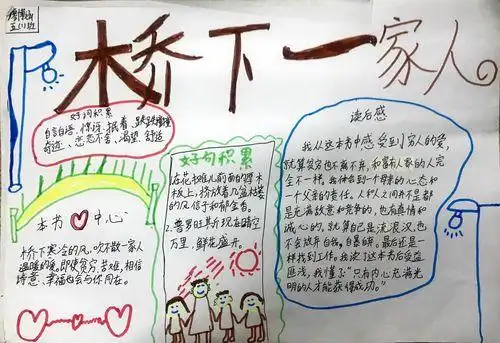 五(1)班
桥下一家人
好词积累
自言自语、惊讶、抿着、跌跌撞撞
奇迹、恋恋不舍、渴望、舒适
本书中心
桥下寒冷的风,吹不散一家人
温暖的爱。即使贫穷、苦难,相信
诗意、幸福也会与你同在。
好句积累
1.在花摊儿前面的蹲木
板上,挤放着几盆枯萎
的风信子和郁金香。
2.普罗旺斯现在晴空
万里,鲜花盛开。
读后感
我从这本书中感受到穷人的爱,
就算贫穷也不离不弃,和富有人家的人完
全不一样。我体会到一个母亲的心态和
一个父亲的责任。人和人之间并不是都
是充满敌意和竞争的,也有真情和
诚心的,就算自己是流浪汉,也
不会放弃自我、自暴弃。最后还是一
样找到工作。我读了这本书后受益
匪浅,我懂了“只有内心充满光
明的人才能获得成功。”